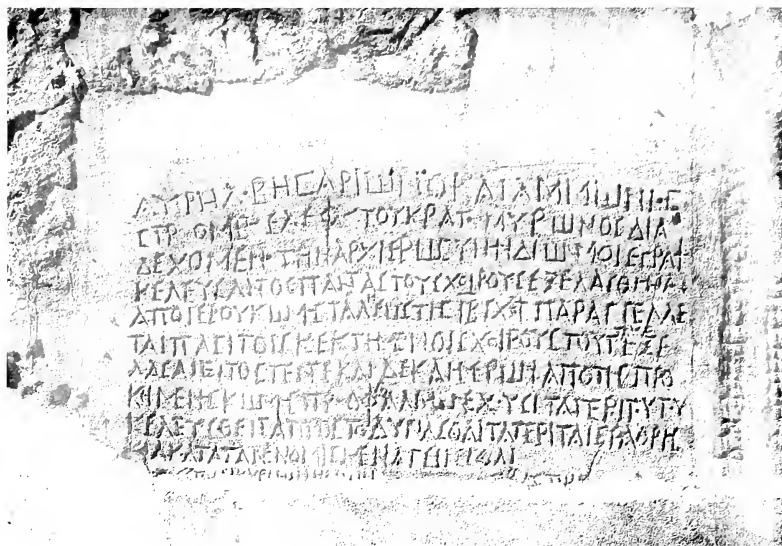 ΑΥΡΗΛ·ΒΗCΑΡΙѠΝ Ο ΚΑΙ ΑΜΜѠΝΙΟC
CΤΡ·ΟΜΒ·ΕΛΕΦ·ΤΟΥ ΚΡΑΤ·ΜΥΡѠΝΟC ΔΙΑ
ΔΕΧΟΜΕΝ·ΤΗΝ ΑΡΧΙΕΡѠCΥΝΗΝ ΔΙ ѠΝ ΜΟΙ ΕΓΡΑΨ
ΚΕΛΕΥCΑΝΤΟC ΠΑΝΤΑC ΤΟΥC ΧΟΙΡΟΥC ΕΞΕΛΑCΘΗΝΑΙ
ΑΠΟ ΙΕΡΟΥ ΚѠΜ·ΤΑΛΜΕѠC ΤΗC ΙΒ CΧΟΙ ΠΑΡΑΓΓΕΛΛΕ
ΤΑΙ ΠΑCΙ ΤΟΙC ΚΕΚΤΗΜΕΝΟΙC ΧΟΙΡΟΥC ΤΟΥΤΟΥC ΕΞΕ
ΛΑCΑΙ ΕΝΤΟC ΠΕΝΤΕ ΚΑΙ ΔΕΚΑ ΗΜΕΡѠΝ ΑΠΟ ΤΗC ΠΡΟ
ΚΙΜΕΝΗC ΚѠΜΗC ΠΡΟ ΟΦΘΑΛΜѠΝ ΕΧΟΥCΙ ΤΑ ΠΕΡΙ ΤΟΥΤΟΥ
ΚΕΛΕΥCΘΕΝΤΑ ΠΡΟC ΤΟ ΔΥΝΑCΘΑΙ ΤΑ ΠΕΡΙ ΤΑ ΙΕΡΑ ΘΡΗ
CΚΙΑ ΚΑΤΑ ΤΑ ΝΕΝΟΜΙCΜΕΝΑ ΓΕΙΝΕCΘΑΙ